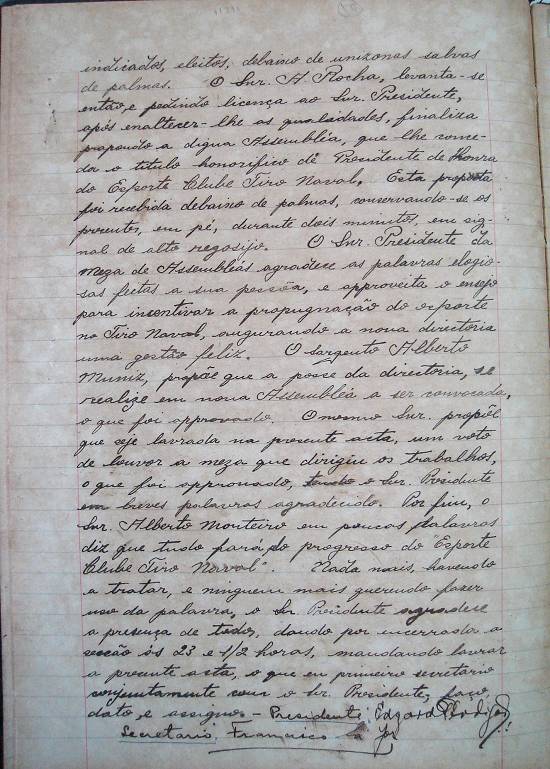 indicados, eleitos, debaixo de unizonas salvas
de palmas. O Snr. A. Rocha, levanta-se
então, e pedindo licença ao Snr. Presidente,
após enaltecer-lhe as qualidades, finaliza
propondo a digna Assembléa, que lhe conce-
da o titulo honorifico de Presidente de Honra
do Esporte Clube Tiro Naval. Esta proposta
foi recebida debaixo de palmas, conservando-se os
presentes, em pé, durante dois minutos, em sig-
nal de alto regosijo. O Snr. Presidente da
Meza de Assembléas agradece as palavras elogio-
sas feitas a sua pessôa, e approveita o ensejo
para insentivar a propugnação do esporte
no Tiro Naval, augurando a nova directoria
uma gestão feliz. O Sargento Alberto
Muniz, propõe que a posse da directoria, se
realize em nova Assembléa a ser convocada,
o que foi approvado. O mesmo Snr. propõe
que seje lavrada na presente acta, um voto
de louvor a meza que dirigiu os trabalhos,
o que foi approvado, tendo o Snr. Presidente
em breves palavras agradecido. Por fim, o
Snr. Alberto Monteiro em poucas palavras
diz que tudo fará, do progresso do "Esporte
Clube Tiro Naval". Nada mais, havendo
a tratar, e ninguem mais querendo fazer
uso da palavra, o Sr. Presidente agradece
a presença de todos, dando por encerrada a
secção ás 23 e 1/2 horas, mandando lavrar
a presente acta, o que eu primeiro secretario
conjuntamente com o Sr. Presidente, faço
dato, e assigno - Presidente: Edgard
Secretario, Francisco